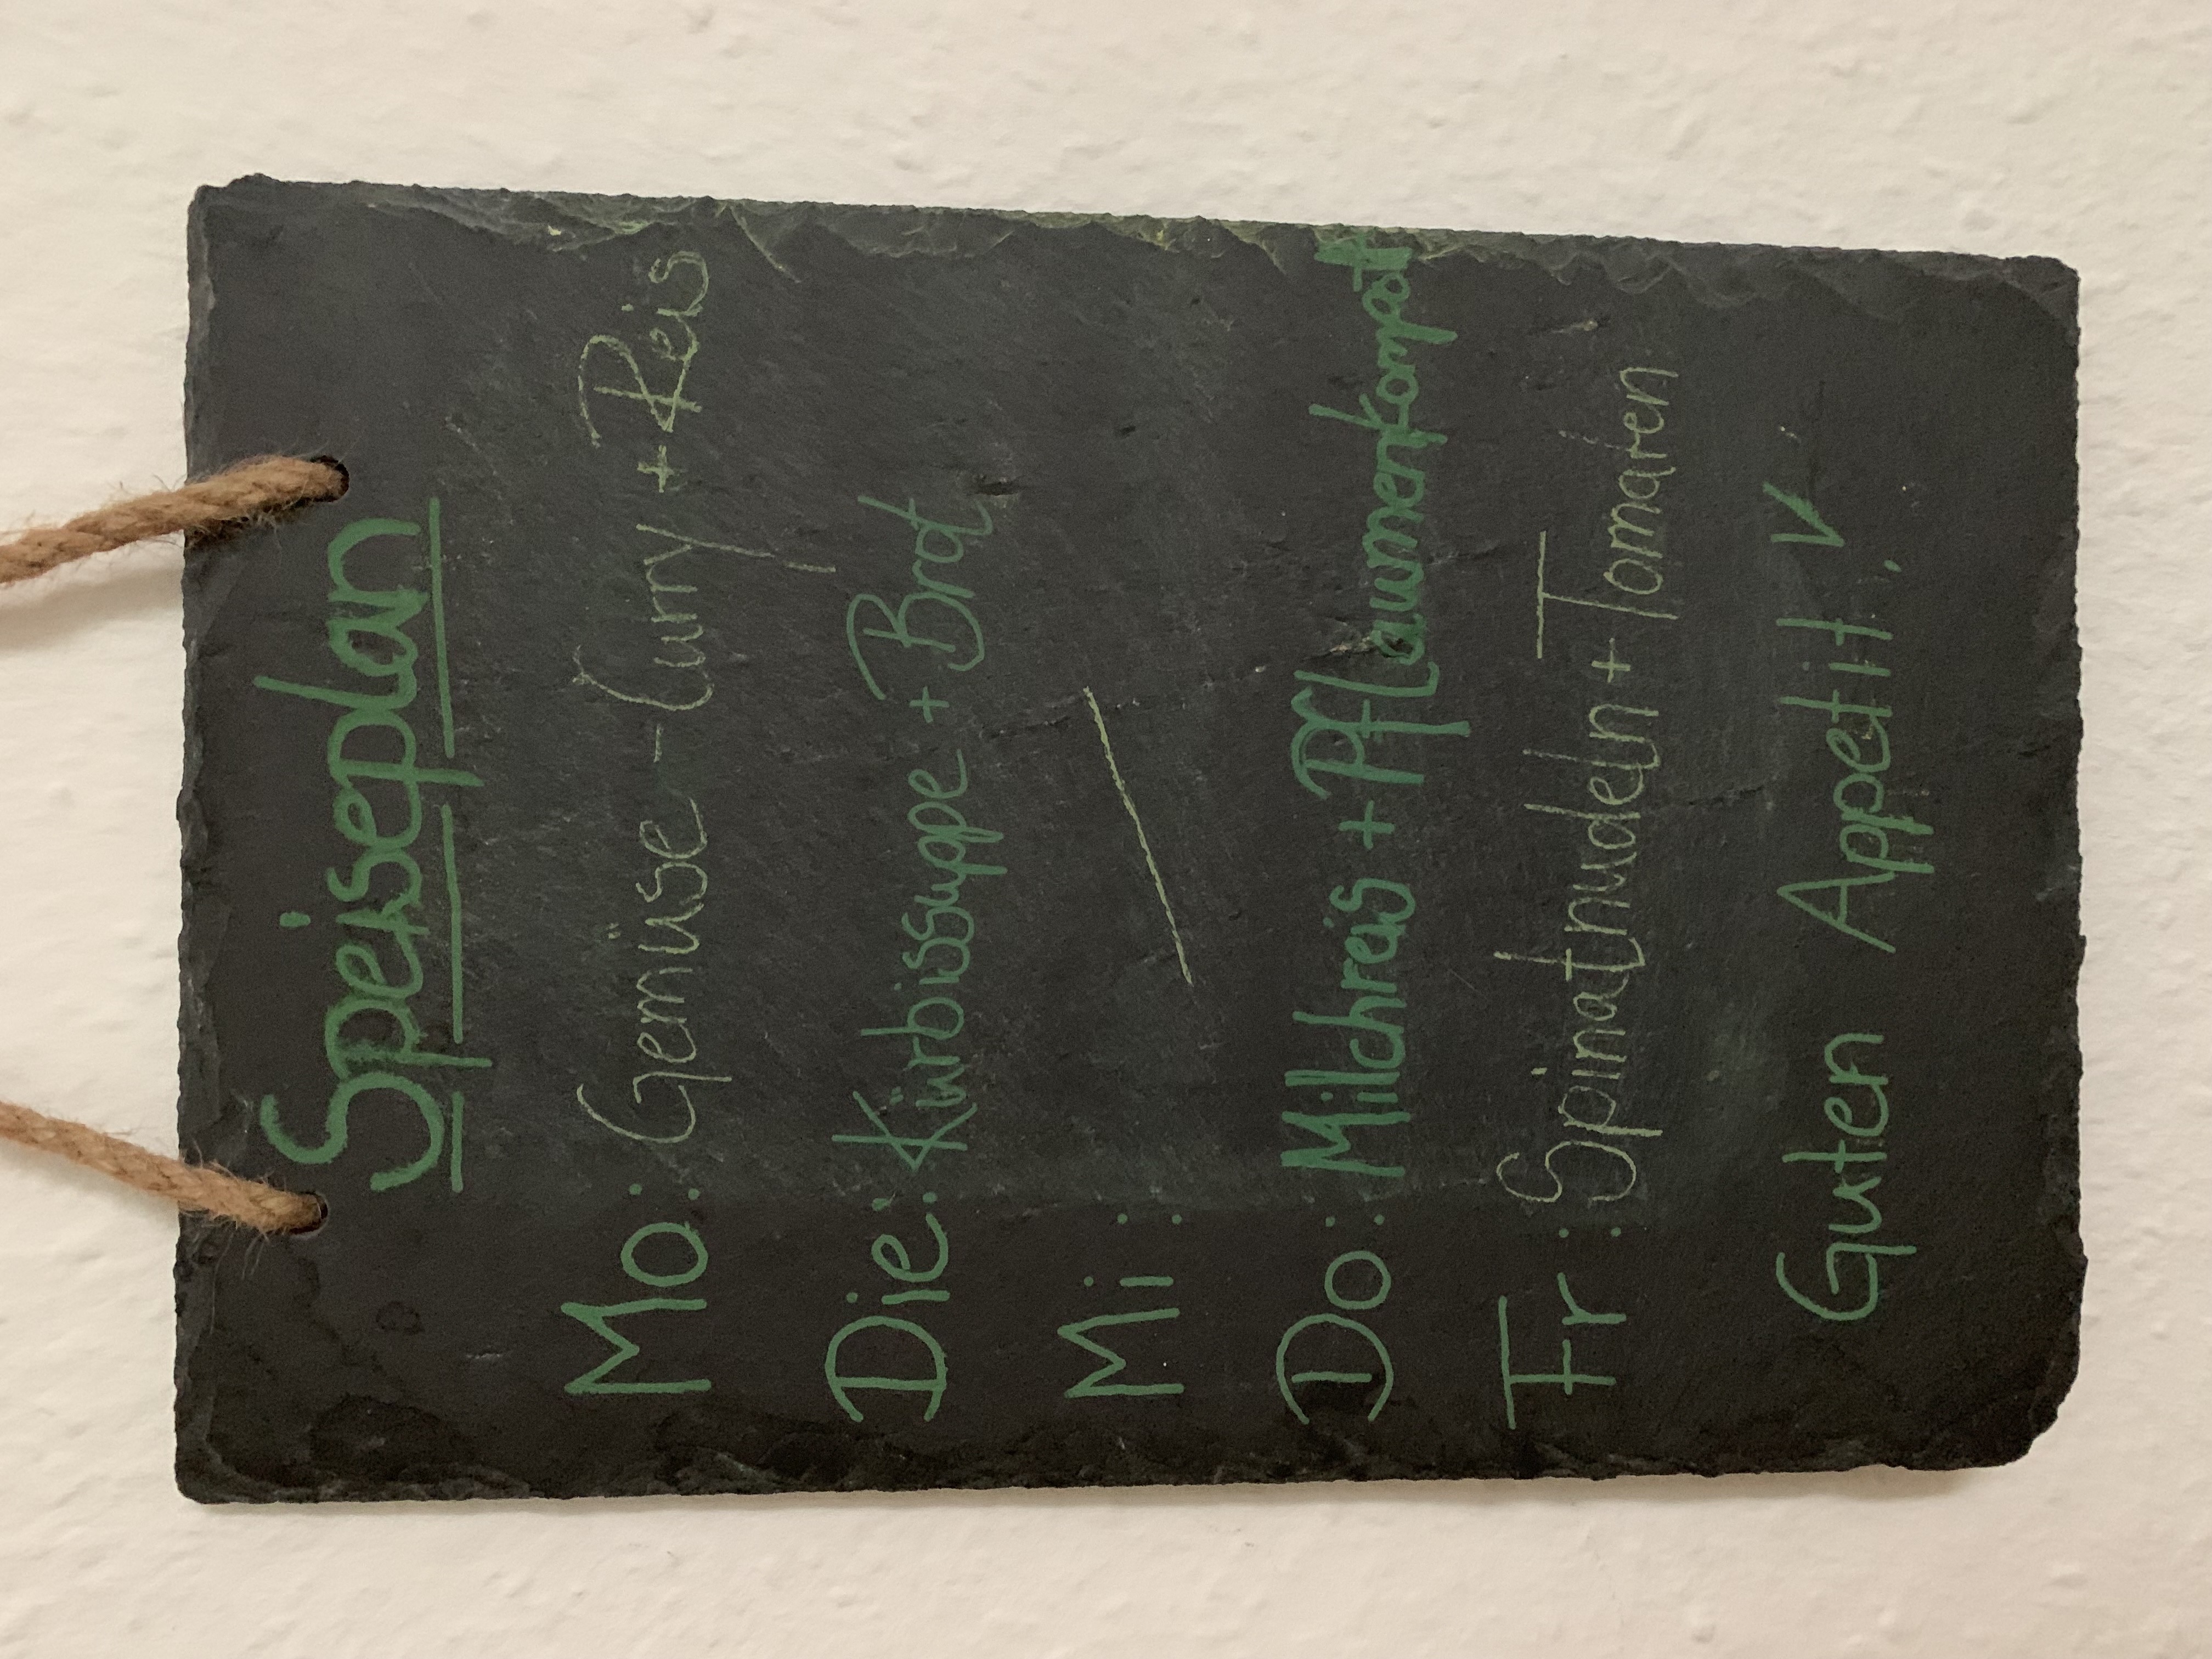 Speiseplan
Mo: Gemüse-Curry + Reis
Die: Kürbissuppe + Brot
Mi: —
Do: Milchreis + Pflaumenkompott
Fr: Spinatnudeln + Tomaten
Guten Appetit!